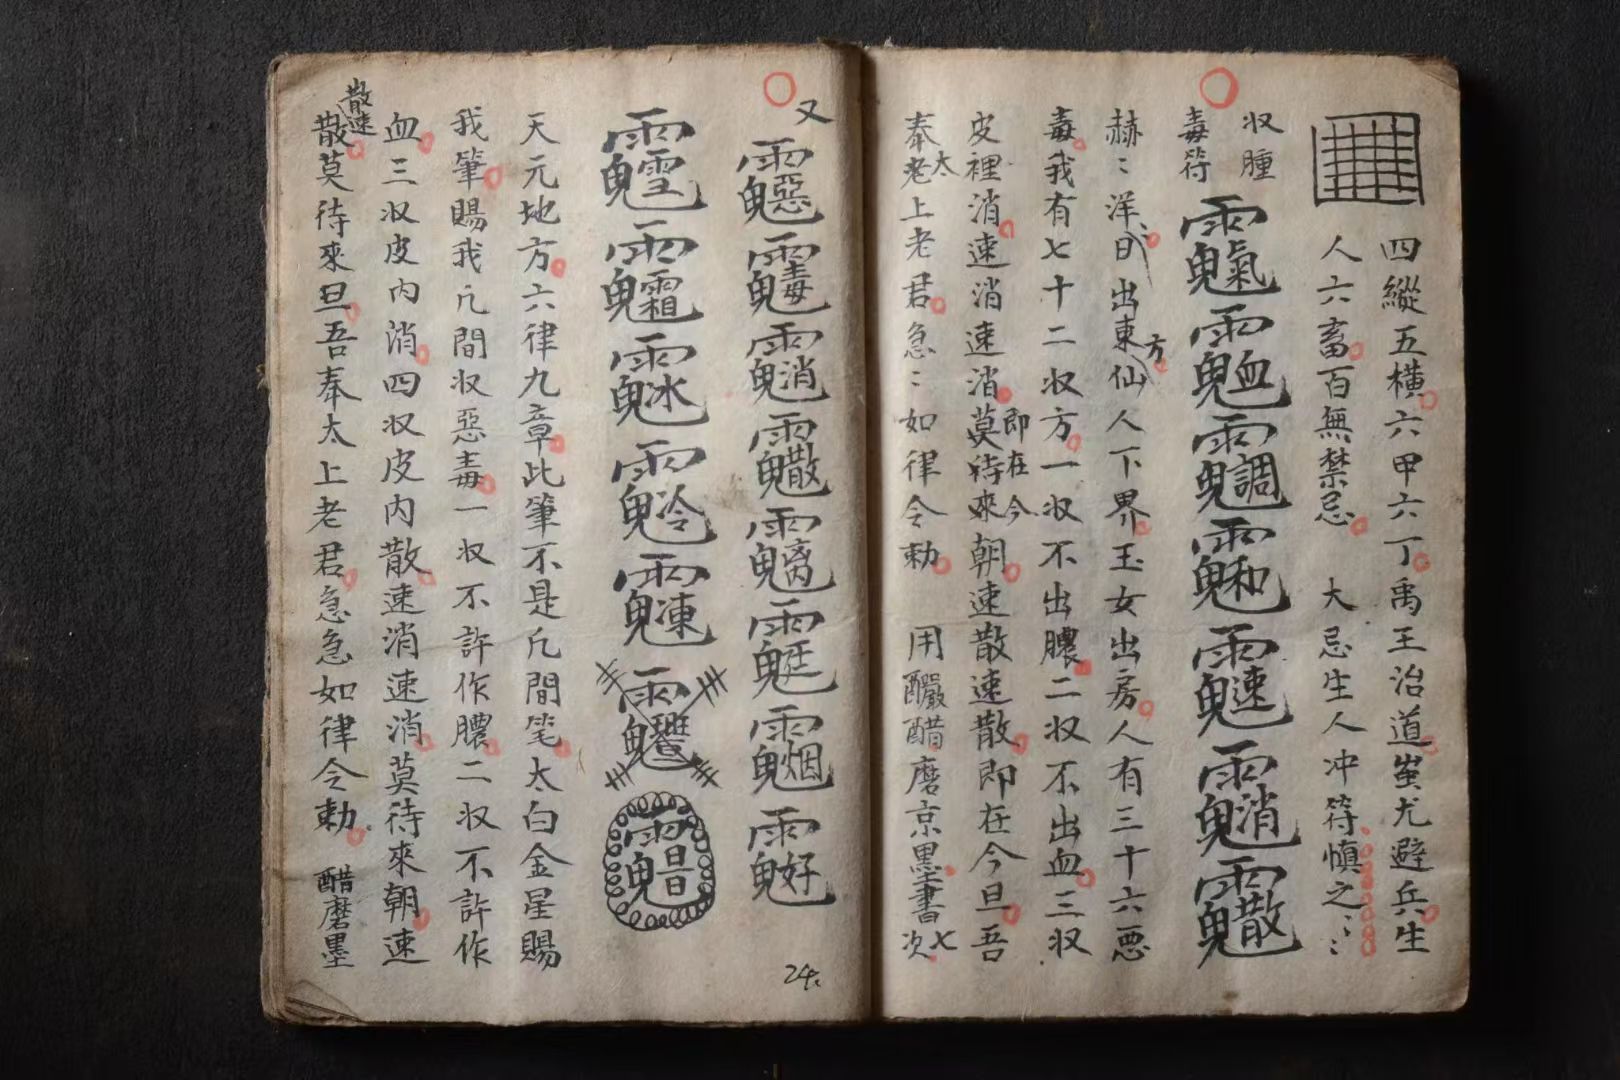 四縱五橫六甲六丁禹王治道蚩尤避兵生
人六畜百無禁忌 大忌生人冲符慎之〻〻
収腫
毒符
赫〻洋〻日出東方仙人下界玉女出房人有三十六惡
毒我有七十二収方一収不出膿二収不出血三収
皮裡消速消速消莫待來朝速散速散即在今旦吾
即在今
奉太老上老君急〻如律令勅 用釅醋磨京墨書七次
又
天元地方六律九章此筆不是凢間笔太白金星賜
我筆賜我凢間収惡毒一収不許作膿二収不許作
血三収皮内消四収皮内散速消速消莫待來朝速
散速
散莫待來旦吾奉太上老君急急如律令勅 醋磨墨
24